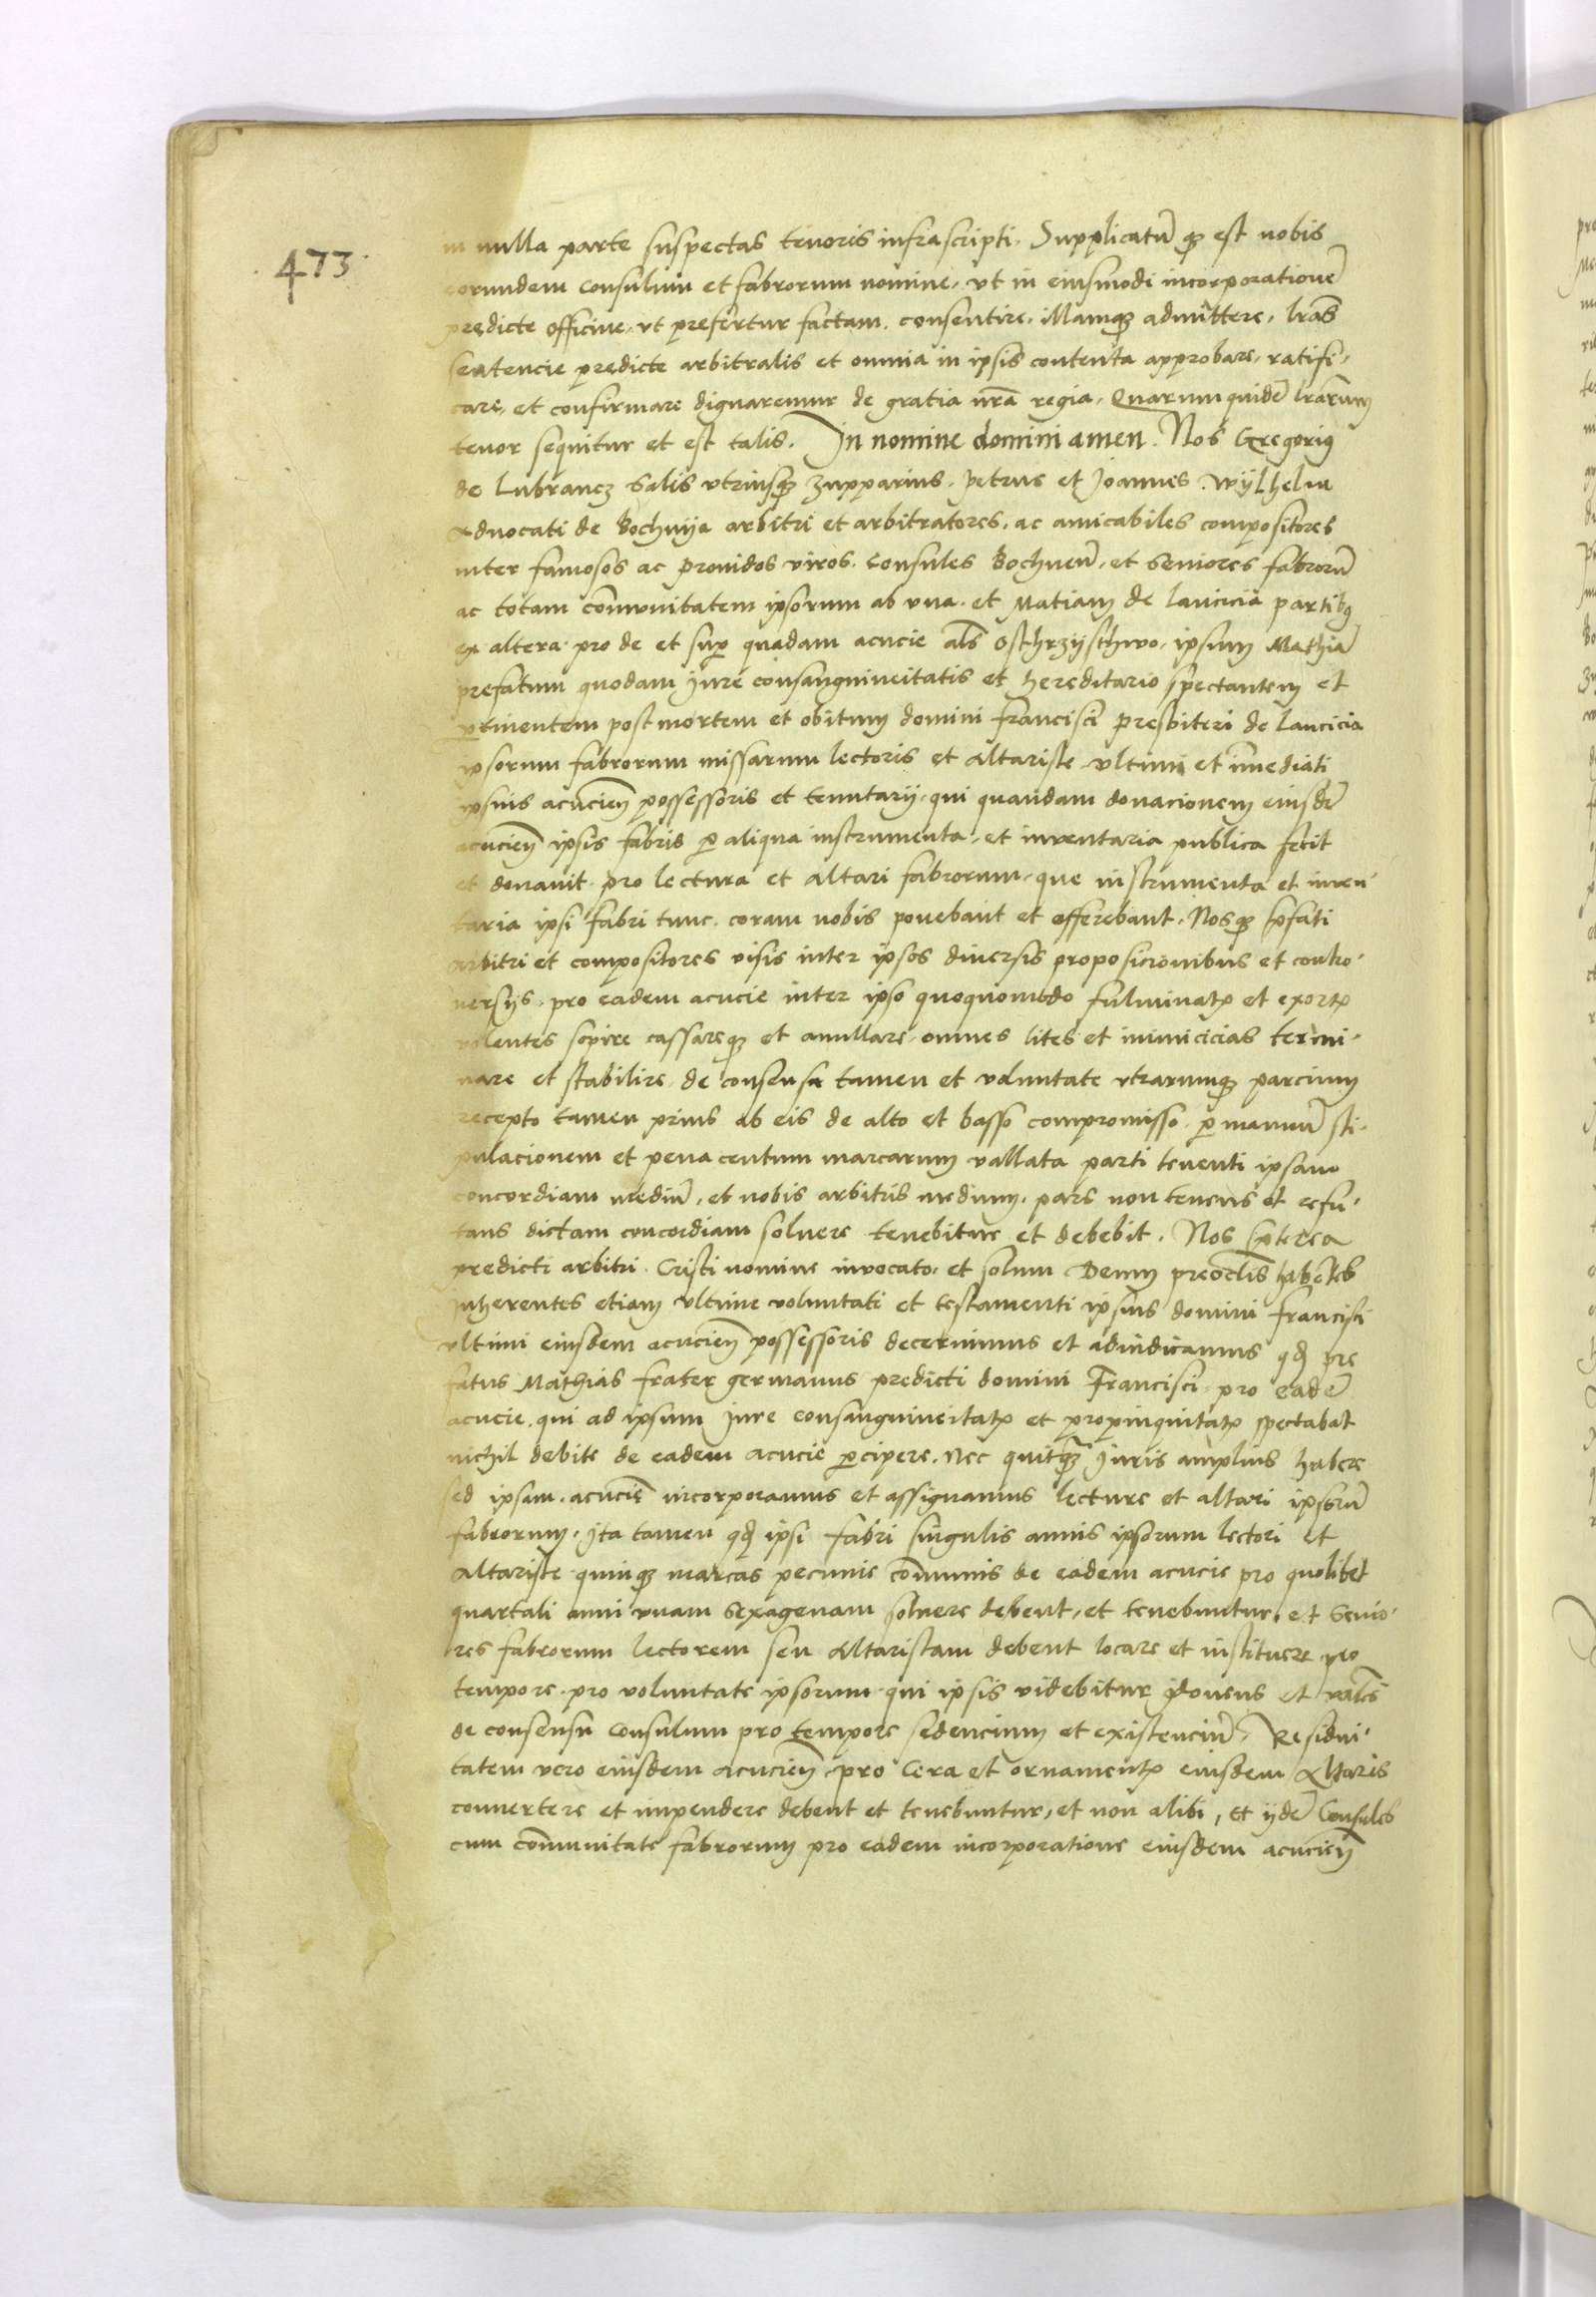 .473.
in nulla parte suspectas tenoris infrascripti. Supplicatũ qʒ est nobis
eorundem consulum et fabrorum nomine, vt in eiusmodi incorporationẽ
predicte officine, vt prefertur factam, consentire, illamqʒ admittere, lrãs
sentencie predicte arbitralis et omnia in ipsis contenta approbare, ratifi-
care, et confirmare dignaremur de gratia nrã regia, Quarum quidẽ lrãrum
tenor sequitur et est talis. In nomine domini amen. Nos Gregoriꝰ
de Lubrancz salis vtriusqʒ zupparius, Petrus et Joannes Wÿlhelm
Aduocati de Bochnÿa arbitri et arbitratores, ac amicabiles compositores
inter famosos ac prouidos viros. Consules Bochnenẽ, et Seniores fabrorũ
ac totam com̃vnitatem ipsorum ab vna. et Matiam de Lancicia partibꝰ
ex altera. pro de et suꝑ quadam acucie als̃ Osthrzÿsthwo, ipsum Mathiã
prefatum quodam jure consanguineitatis et hereditario spectantem et
ꝑtinentem post mortem et obitum domini francisci presbiteri de Lancicia
ipsorum fabrorum missarum lectoris et altariste vltimi et im̃ediati
ipsius acucieñ possessoris et tenutarij, qui quandam donacionem eiusdẽ
acucieñ ipsis fabris ꝑ aliqua instrumenta, et inventaria publica fecit
et donauit. pro lectura et altari fabrorum, que instrumenta et inven-
taria ipsi fabri tunc. coram nobis ponebant et offerebant. Nosqʒ p̃fati
arbitri et compositores visis inter ipsos diuersis proposicionibus et contro-
uersijs. pro eadem acucie inter ipso quoquomodo fulminatꝭ et exortꝭ
volentes sopire cassareqʒ et annullare, omnes lites et inimicicias termi-
nare et stabilire, de consensu tamen et voluntate vtrarumqʒ parcium
recepto tamen prius ab eis de alto et basso compromisso. ꝑ manuũ sti-
pulacionem et pena centum marcarum vallata parti tenenti ipsam
concordiam mediũ, et nobis arbitris medium, pars non tenens et refu-
tans dictam concordiam soluere tenebitur et debebit. Nos p̃terea
predicti arbitri. Cristi nomine invocato, et solum Deum preoc̃lis habẽtes
Inherentes etiam vltime voluntati et testamenti ipsius domini francisci
vltimi eiusdem acucieñ possessoris decernimus et adiudicamus qđ pre
fatus Mathias frater germanus predicti domini Francisci, pro eadẽ
acucie, qui ad ipsum jure consanguineitatꝭ et propinquitatꝭ spectabat
nichil debite de eadem acucie ꝑcipere, nec quitqʒ̃ juris amplius habere
sed ipsam. acuciẽ incorporamus et assignamus lecture et altari ipsorũ
fabrorum. jta tamen qđ ipsi fabri singulis annis ipsorum lectori et
altariste quinqʒ marcas pecunie com̃unis de eadem acucie pro quolibet
quartali anni vnam sexagenam soluere debent, et tenebuntur, et Senio-
res fabrorum lectorem seu altaristam debent locare et instituere pro
tempore, pro voluntate ipsorum. qui ipsis videbitur ÿdoneus et
de consensu Consulum pro tempore sedencium et existenciũ, Residui-
tatem vero eiusdem acucieñ, pro cera et ornamentꝭ eiusdem Altaris
conuertere et impendere debent et tenebuntur, et non alibi, Et ijdẽ Consules
cum com̃unitate fabrorum pro eadem incorporatione eiusdem acucieñ